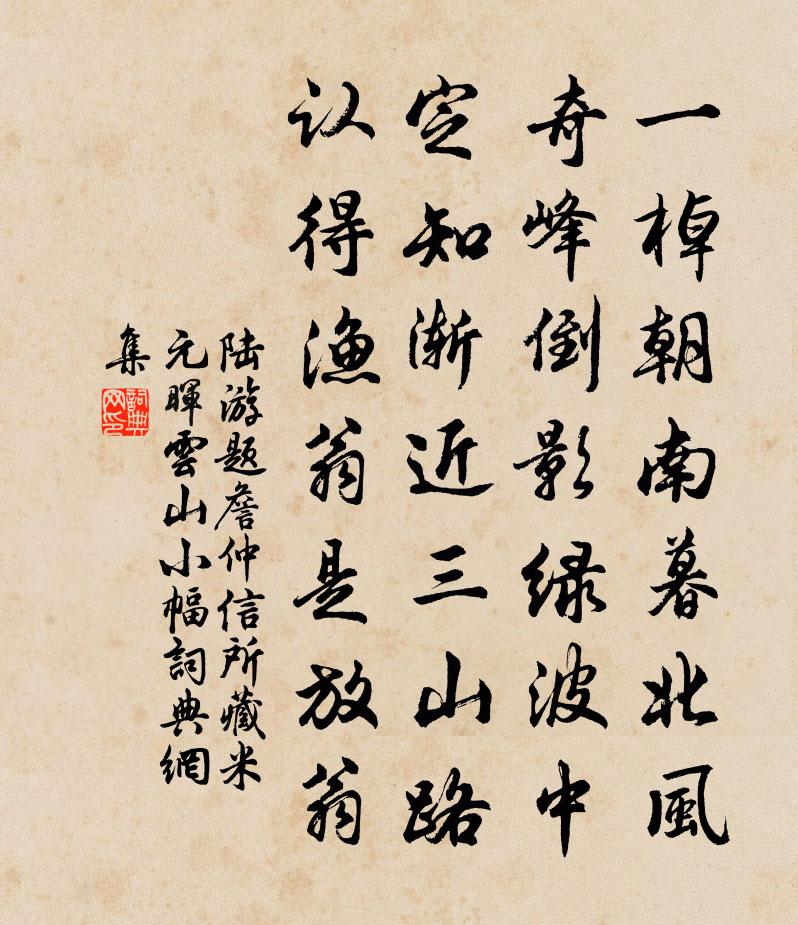 一棹朝南暮北風
奇峰倒影緑波中
定知漸近三山路
认得漁翁是放翁
陆游题詹仲信所藏米
元暉雲山小幅詞典網
集
詞典
网印